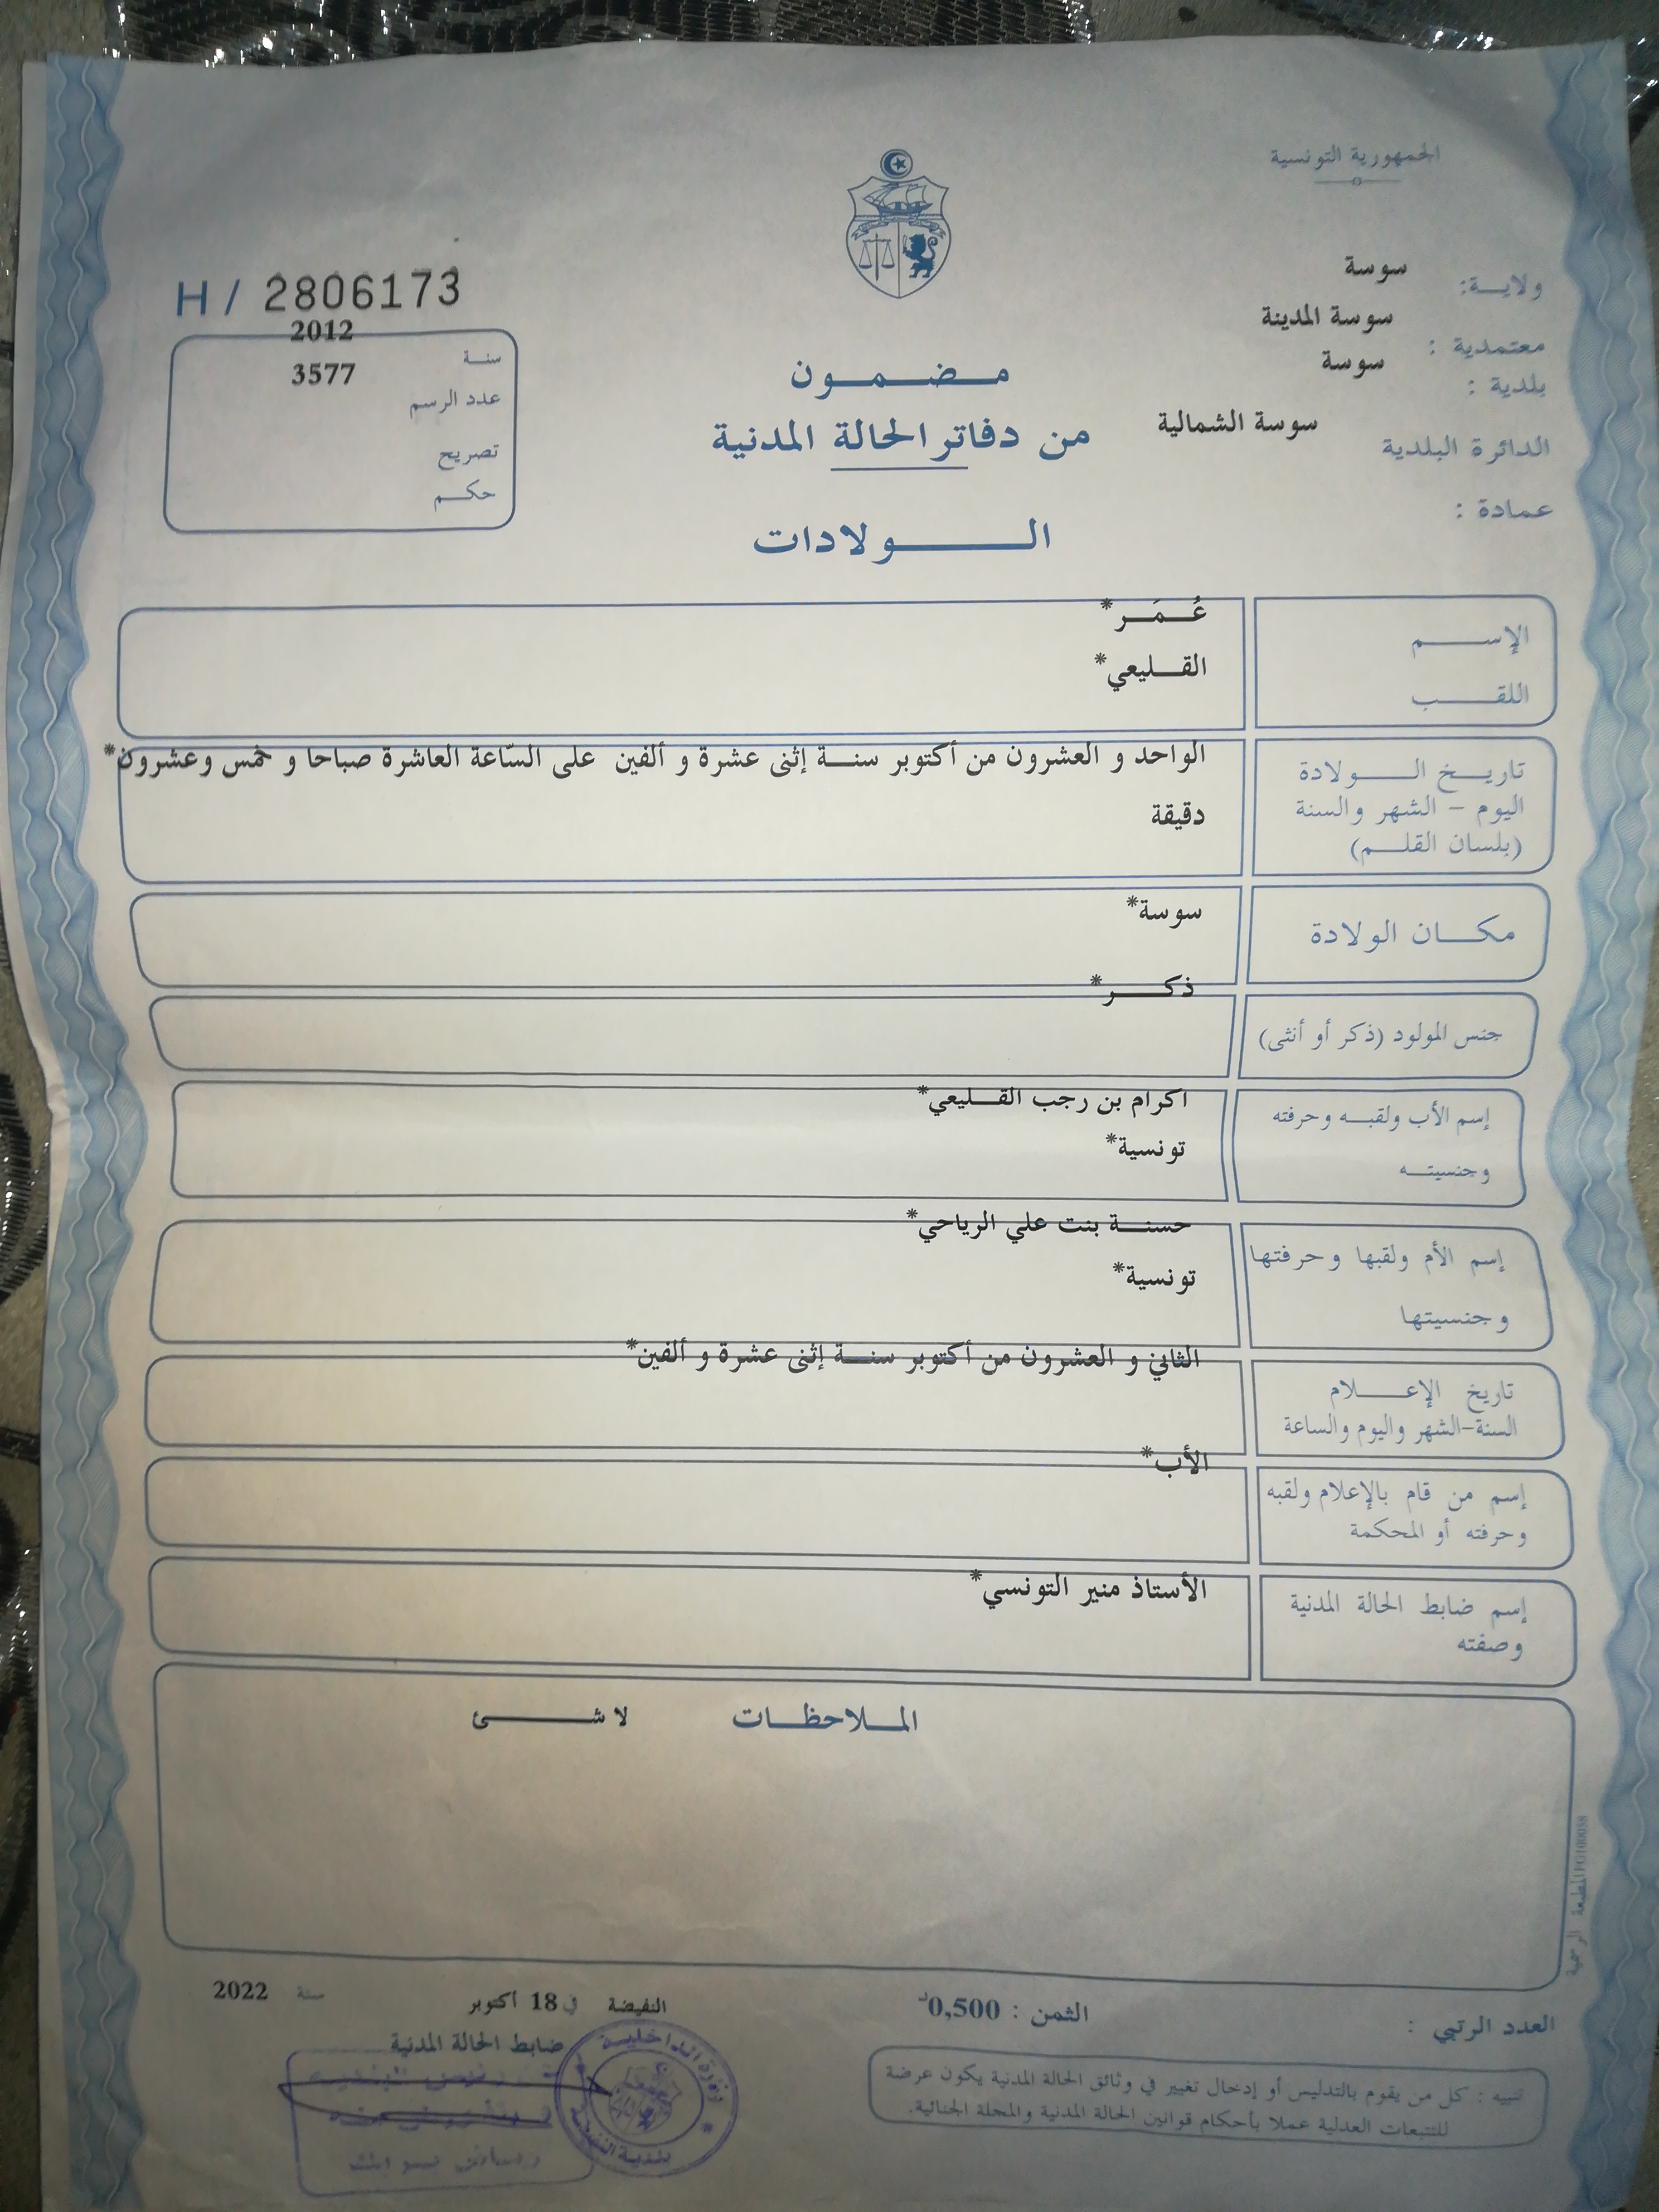 الجمهورية التونسية
ولايـــة: سوسة
معتمدية : سوسة المدينة
بلدية : سوسة
الدائرة البلدية سوسة الشمالية
عمادة :
H / 2806173
سنــة 2012
عدد الرسم 3577
تصريح
حكــم
مــضــمــون
من دفاتر الحالة المدنية
الــــولادات
الإســـــم عُـــمَـــر*
اللقـــــب القـــليعي*
تاريـــخ الـــــولادة الواحد و العشرون من أكتوبر سنـــة إثنى عشرة و ألفين على السّاعة العاشرة صباحا و خمس وعشرون*
اليوم – الشهر والسنة دقيقة
(بلسان القلـــم)
مكـــان الولادة سوسة*
جنس المولود (ذكر أو أنثى) ذكـــــر*
إسم الأب ولقبـــه وحرفته اكرام بن رجب القـــليعي*
وجنسيتـــه تونسية*
إسم الأم ولقبها وحرفتها حسنـــة بنت علي الرياحي*
وجنسيتها تونسية*
تاريخ الإعـــــلام الثاني و العشرون من أكتوبر سنـــة إثنى عشرة و ألفين*
السنة-الشهر واليوم والساعة
إسم من قام بالإعلام ولقبه الأب*
وحرفته أو المحكمة
إسم ضابط الحالة المدنية الأستاذ منير التونسي*
وصفته
المـــلاحظـــات لا شـــــئ
المطبعة الرسمية
العدد الرتبي :
الثمن : 0,500د
النفيضة في 18 أكتوبر سنة 2022
ضابط الحالة المدنية
وزارة الداخلية
بلدية النفيضة
تنبيه : كل من يقوم بالتدليس أو إدخال تغيير في وثائق الحالة المدنية يكون عرضة
للتتبعات العدلية عملا بأحكام قوانين الحالة المدنية والمجلة الجنائية.